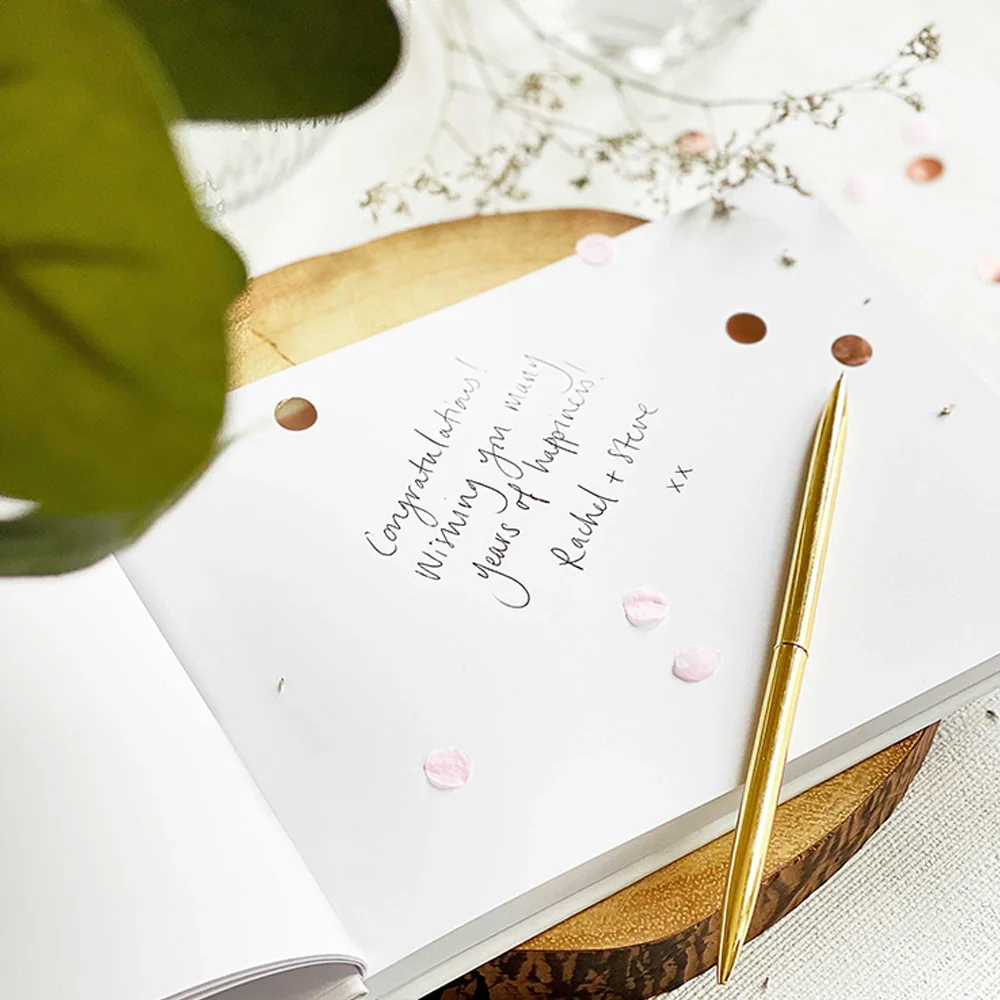 Congratulations!
Wishing you many
years of happiness!
Rachel + Steve
xx